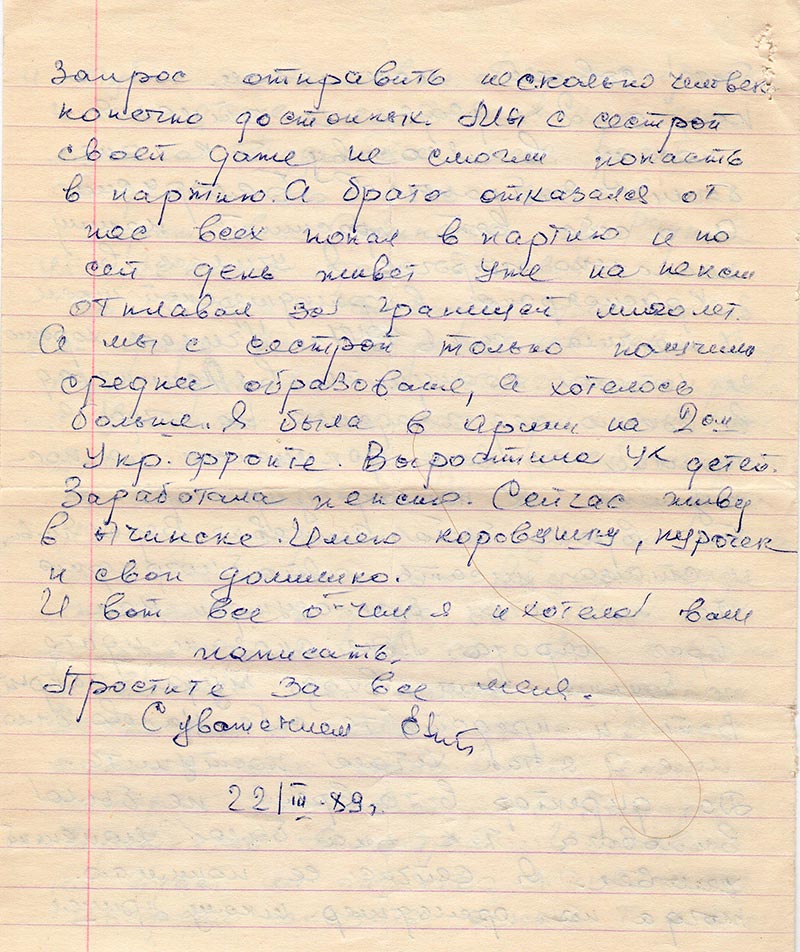 Запрос отправить несколько человек
конечно достойных. Мы с сестрой
своей даже не смогли попасть
в партию. А брат отказался от
нас всех попал в партию и по
сей день живет уже на пенсии
отплавал за границей много лет.
А мы с сестрой только получили
среднее образование, а хотелось
больше. Я была в армии на 2ом
Укр. фронте. Выростила 4х детей.
Заработала пенсию. Сейчас живу
в Ачинске. Имею коровушку, курочек
и свой домишко.
И вот все о чем я и хотела вам
написать.
Простите за все меня.
С уважением
22/III-89г.